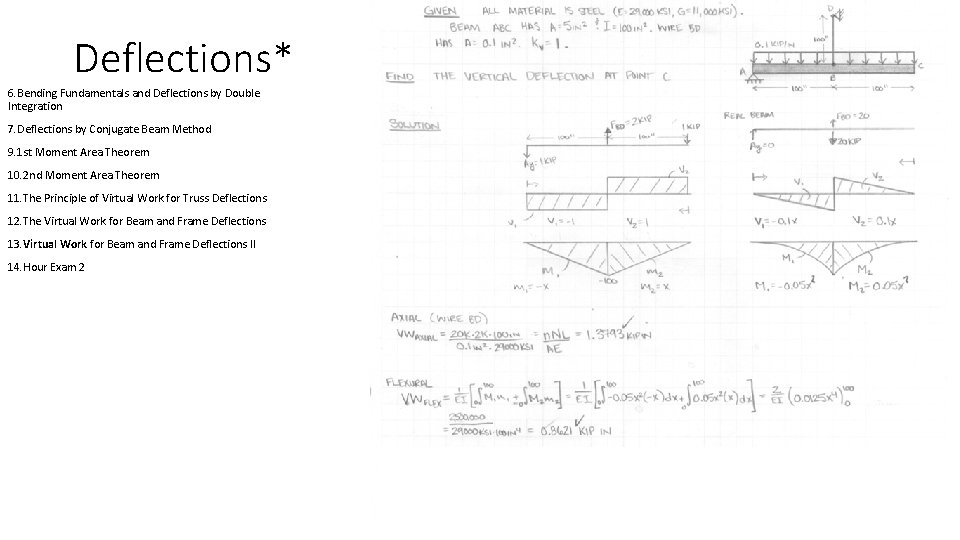 Deflections*
6. Bending Fundamentals and Deflections by Double
Integration
7. Deflections by Conjugate Beam Method
9. 1st Moment Area Theorem
10. 2nd Moment Area Theorem
11. The Principle of Virtual Work for Truss Deflections
12. The Virtual Work for Beam and Frame Deflections
13. Virtual Work for Beam and Frame Deflections II
14. Hour Exam 2
GIVEN ALL MATERIAL IS STEEL (E=29,000 KSI, G=11,000 KSI).
BEAM ABC HAS A=5 IN² & I=100 IN². WIRE BD
HAS A=0.1 IN². Kv=1.
FIND THE VERTICAL DEFLECTION AT POINT C
D
100"
0.1 KIP/IN
A
B
C
100"
100"
SOLUTION
FBD=2KIP
1 KIP
100"
100"
Ay=1KIP
V₂
V₁
V₁=-1
V₂=1
M₁
-100
M₂
m₁=-x
m₂=x
REAL BEAM
FBD=20
Ay=0
20KIP
V₁
V₂
V₁=-0.1x
V₂=0.1x
M₁
M₂
M₁=-0.05x²
M₂=0.05x²
AXIAL (WIRE BD)
VW AXIAL = 20K·2K·100IN / 0.1IN²·29000KSI = nNL / AE = 1.3793 KIP IN
FLEXURAL
VW FLEX = 1/EI [₀∫¹⁰⁰ M₁m₁ + ₀∫¹⁰⁰ M₂m₂] = 1/EI [₀∫¹⁰⁰ -0.05x²(-x)dx + ₀∫¹⁰⁰ 0.05x²(x)dx] = 2/EI (0.0125x⁴)₀¹⁰⁰
= 2500,000 / 29000KSI·100IN⁴ = 0.8621 KIP IN